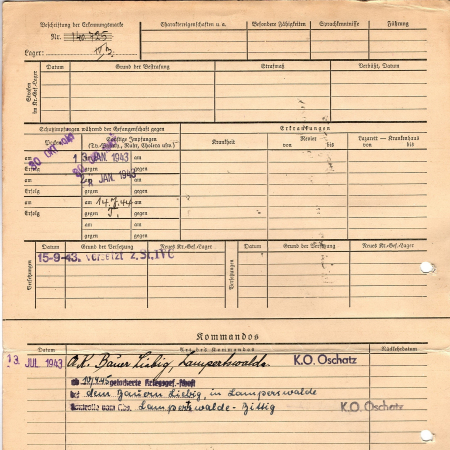 Beschriftung der Erkennungsmarke
Nr. 140 725
Lager: IV B
Charaktereigenschaften u. a.
Besondere Fähigkeiten
Sprachkenntnisse
Führung
Strafen im Kr.-Gef.-Lager
Datum
Grund der Bestrafung
Strafmaß
Verbüßt, Datum
Schutzimpfungen während der Gefangenschaft gegen
Erkrankungen
Pocken
Sonstige Impfungen
(Ty.-Paraty., Ruhr, Cholera usw.)
Krankheit
Revier
von bis
Lazarett — Krankenhaus
von bis
am
13 JAN 1943
am
Erfolg
gegen
gegen
am
JAN 1943
am
Erfolg
gegen
gegen
am
am 14.7.44
am
Erfolg
gegen T.
gegen
am
am
gegen
gegen
Versetzungen
Datum
Grund der Versetzung
Neues Kr.-Gef.-Lager
Datum
Grund der Versetzung
Neues Kr.-Gef.-Lager
15-9-43. VERSETZT z. St. IV C
Kommandos
Datum
Art des Kommandos
Rückkehrdatum
13 JUL 1943
A.K. Bauer Liebig, Lampertswalde.
K.O. Oschatz
gelockerte Kriegsgef.-
bei dem Bauern Liebig, in Lamperswalde
Kontrolle vom Lampertswalde-
K.O. Oschatz